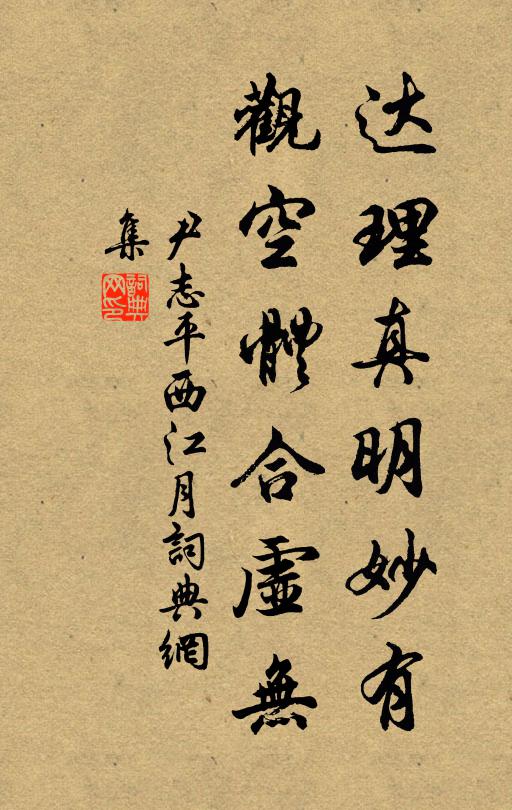 达理真明妙有
觀空體合虛無
尹志平西江月詞典網
集
詞典网印